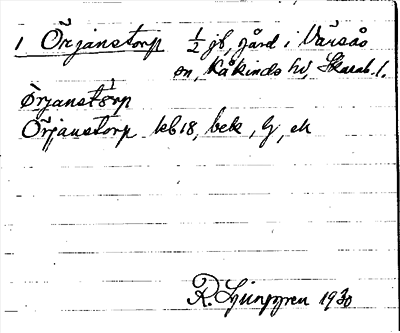 1 Örjanstorp ½ jb, gård i Värsås
sn, Kåkinds hd, Skarab. l.
Örjanstorp
Örjanstorp kb 18, bek, G, ek
R. Ljunggren 1930